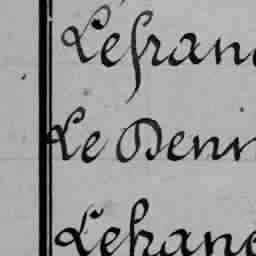 Lefran
Le Denn
Lehane